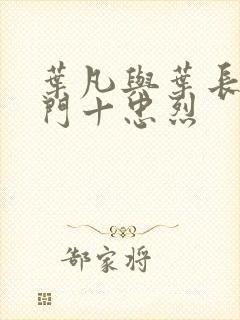 葉凡與葉長
門十忠烈
郜家将